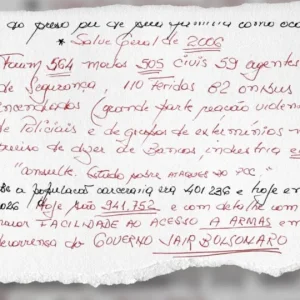 do preso ou de sua família como oco
* Salve Geral de 2006
Foram 564 mortos 505 civis 59 agentes
de Segurança, 110 feridos 82 onibus
incendiados (grande parte reação violen
de Policiais e de grupos de extermínios n
preciso de dizer de Bancos, industria e
"consulte. Estudo sobre ataques do PCC."
a população carceraria era 401 236 e hoje em
2026 Hoje são 941.752 e com detalhe com
maior FACILIDADE AO ACESSO A ARMAS em
decorrencia do GOVERNO JAIR BOLSONARO